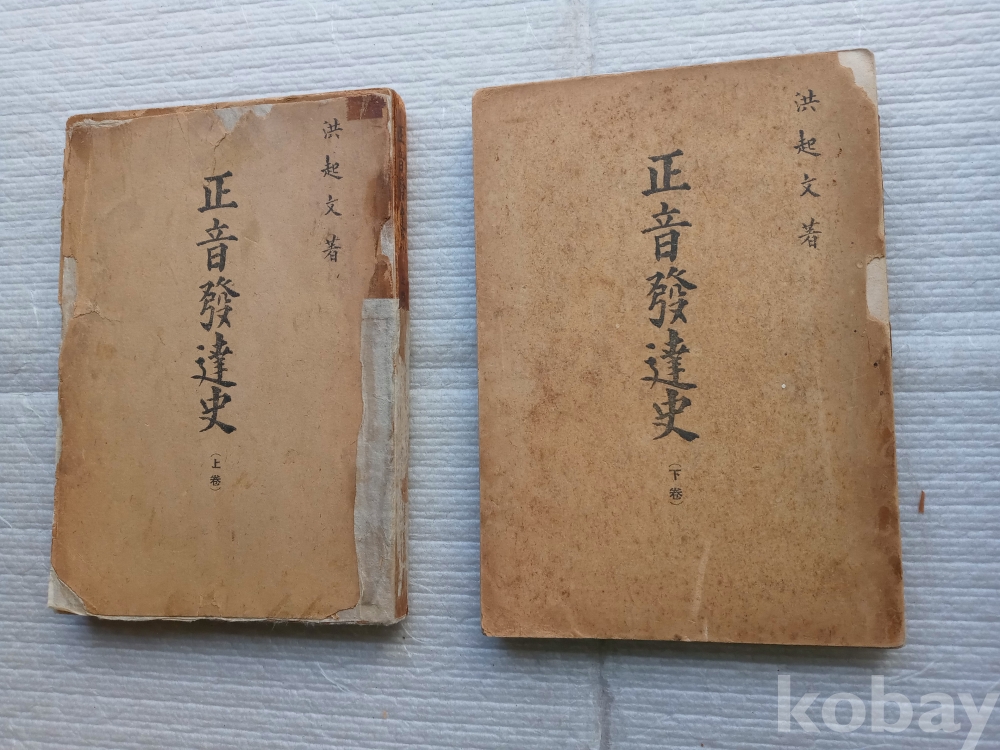 洪起文著
正音發達史
(上卷)
洪起文著
正音發達史
(下卷)
kobay